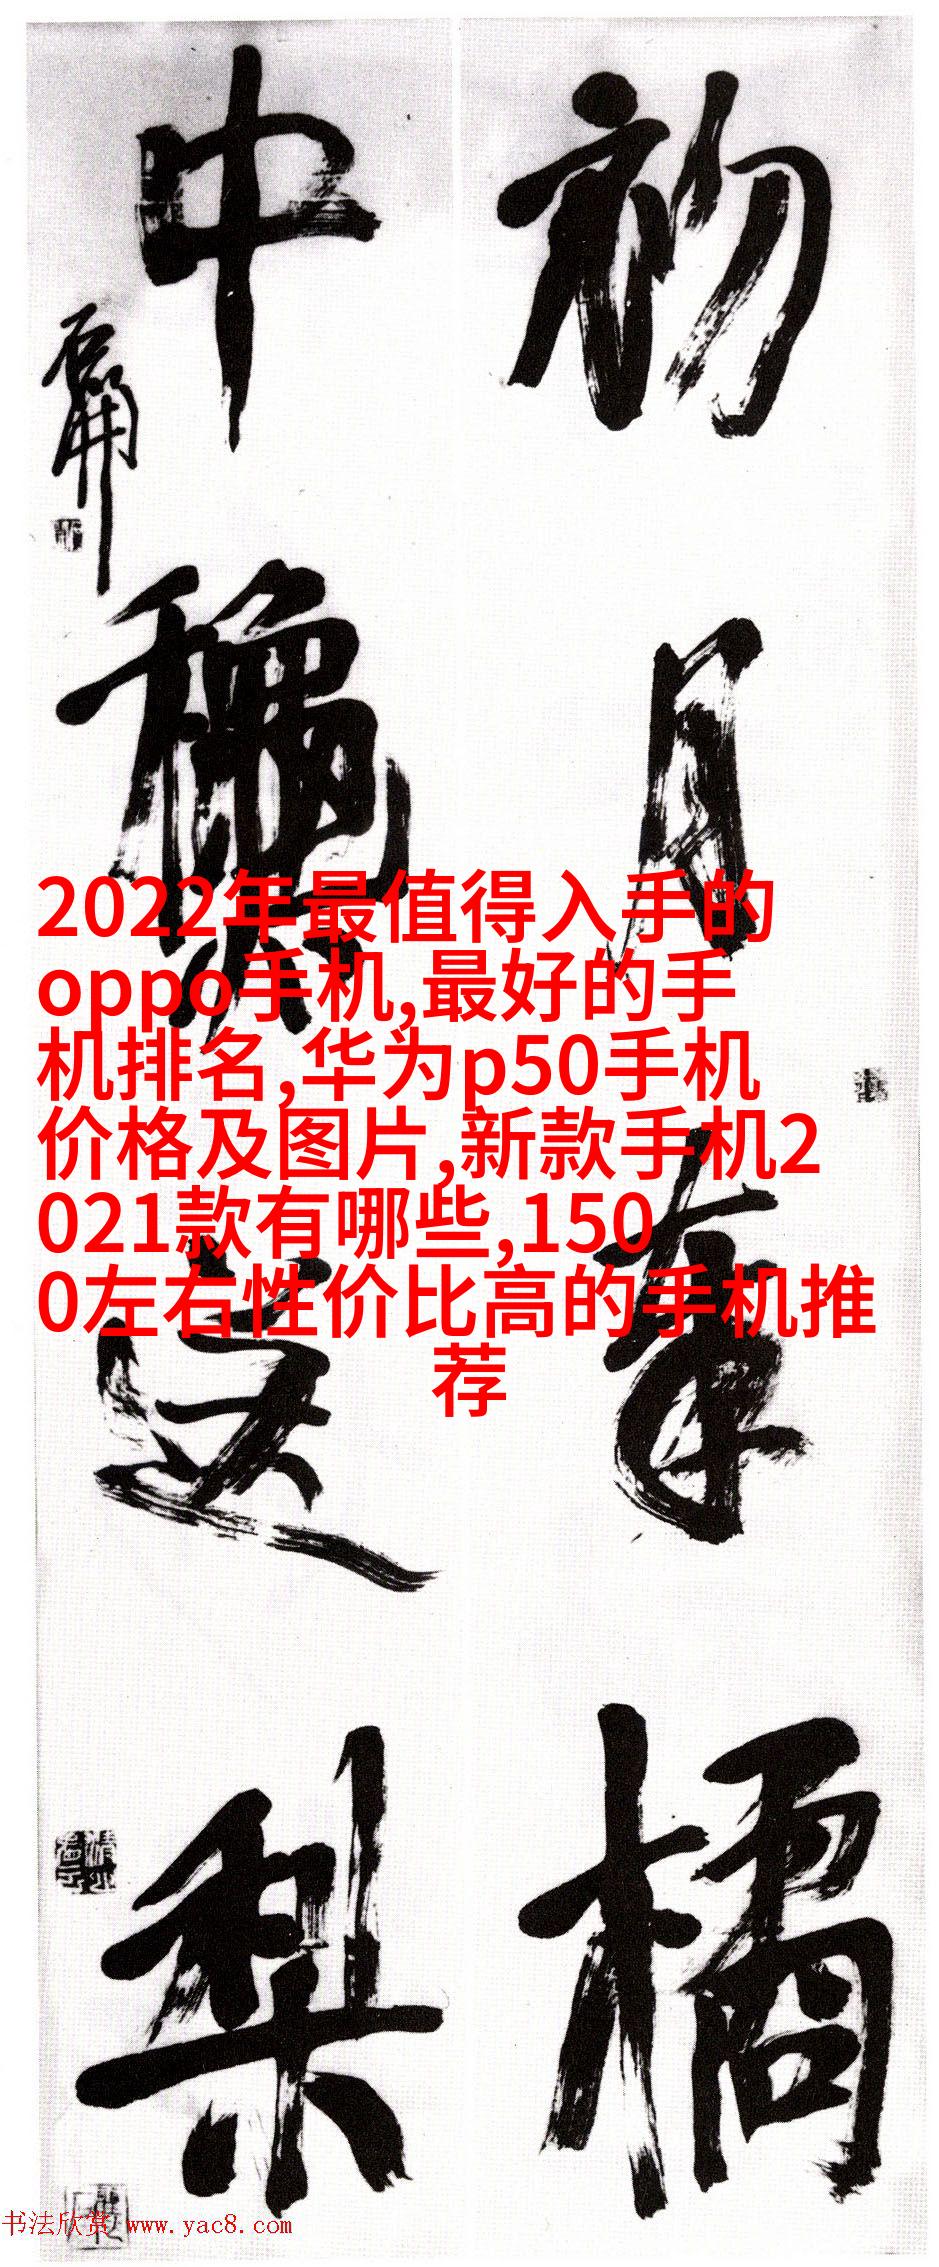 初月奉橘
中穐送梨
石開
2022年最值得入手的
oppo手机,最好的手
机排名,华为p50手机
价格及图片,新款手机2
021款有哪些,150
0左右性价比高的手机推
荐
书法欣赏 www.yac8.com